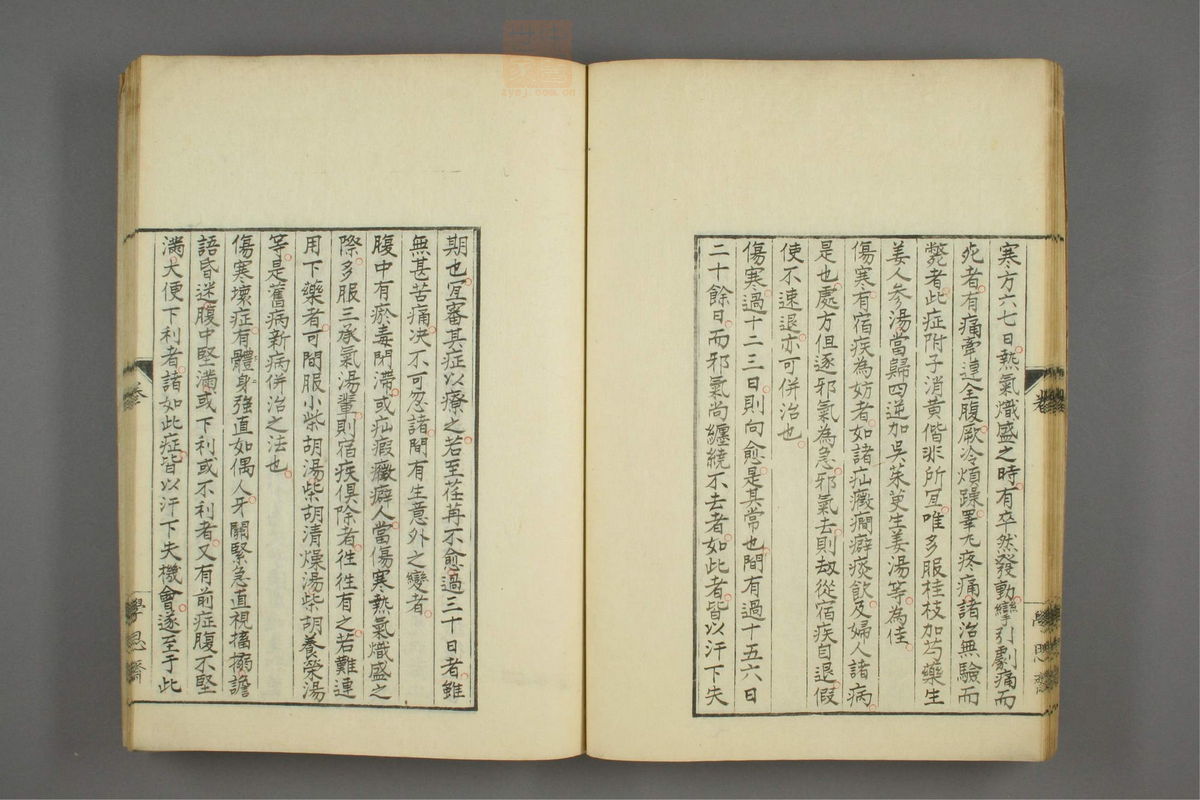 寒方六七日熱氣熾盛之時有卒然發動攣引劇痛而
死者有痛牽連全腹厥冷煩躁睪丸疼痛諸治無驗而
斃者此症附子消黄偕非所冝唯多服桂枝加芍藥生
姜人參湯當歸四逆加吳茱萸生姜湯等為佳
傷寒有宿疾為妨者如諸疝癥癇癖痰飲及婦人諸病
是也處方但逐邪氣為急邪氣去則刼從宿疾自退假
使不速退亦可併治也
傷寒過十二三日則向愈是其常也間有過十五六日
二十餘日而邪氣尚纏繞不去者如此者皆以汗下失
期也冝審其症以療之若至荏苒不愈過三十日者雖
無甚苦痛决不可忽諸間有生意外之變者
腹中有瘀毒閉滯或疝瘕癥癖人當傷寒熱氣熾盛之
際多服三承氣湯輩則宿疾俱除者徃徃有之若難連
用下藥者可間服小柴胡湯柴胡清燥湯柴胡養榮湯
等是舊病新病併治之法也
傷寒壞症有體身強直如偶人牙關緊急直視搐搦譫
語昏迷腹中堅滿或下利或不利者又有前症腹不堅
滿大便下利者諸如此症皆以汗下夫機會遂至于此
學思齋